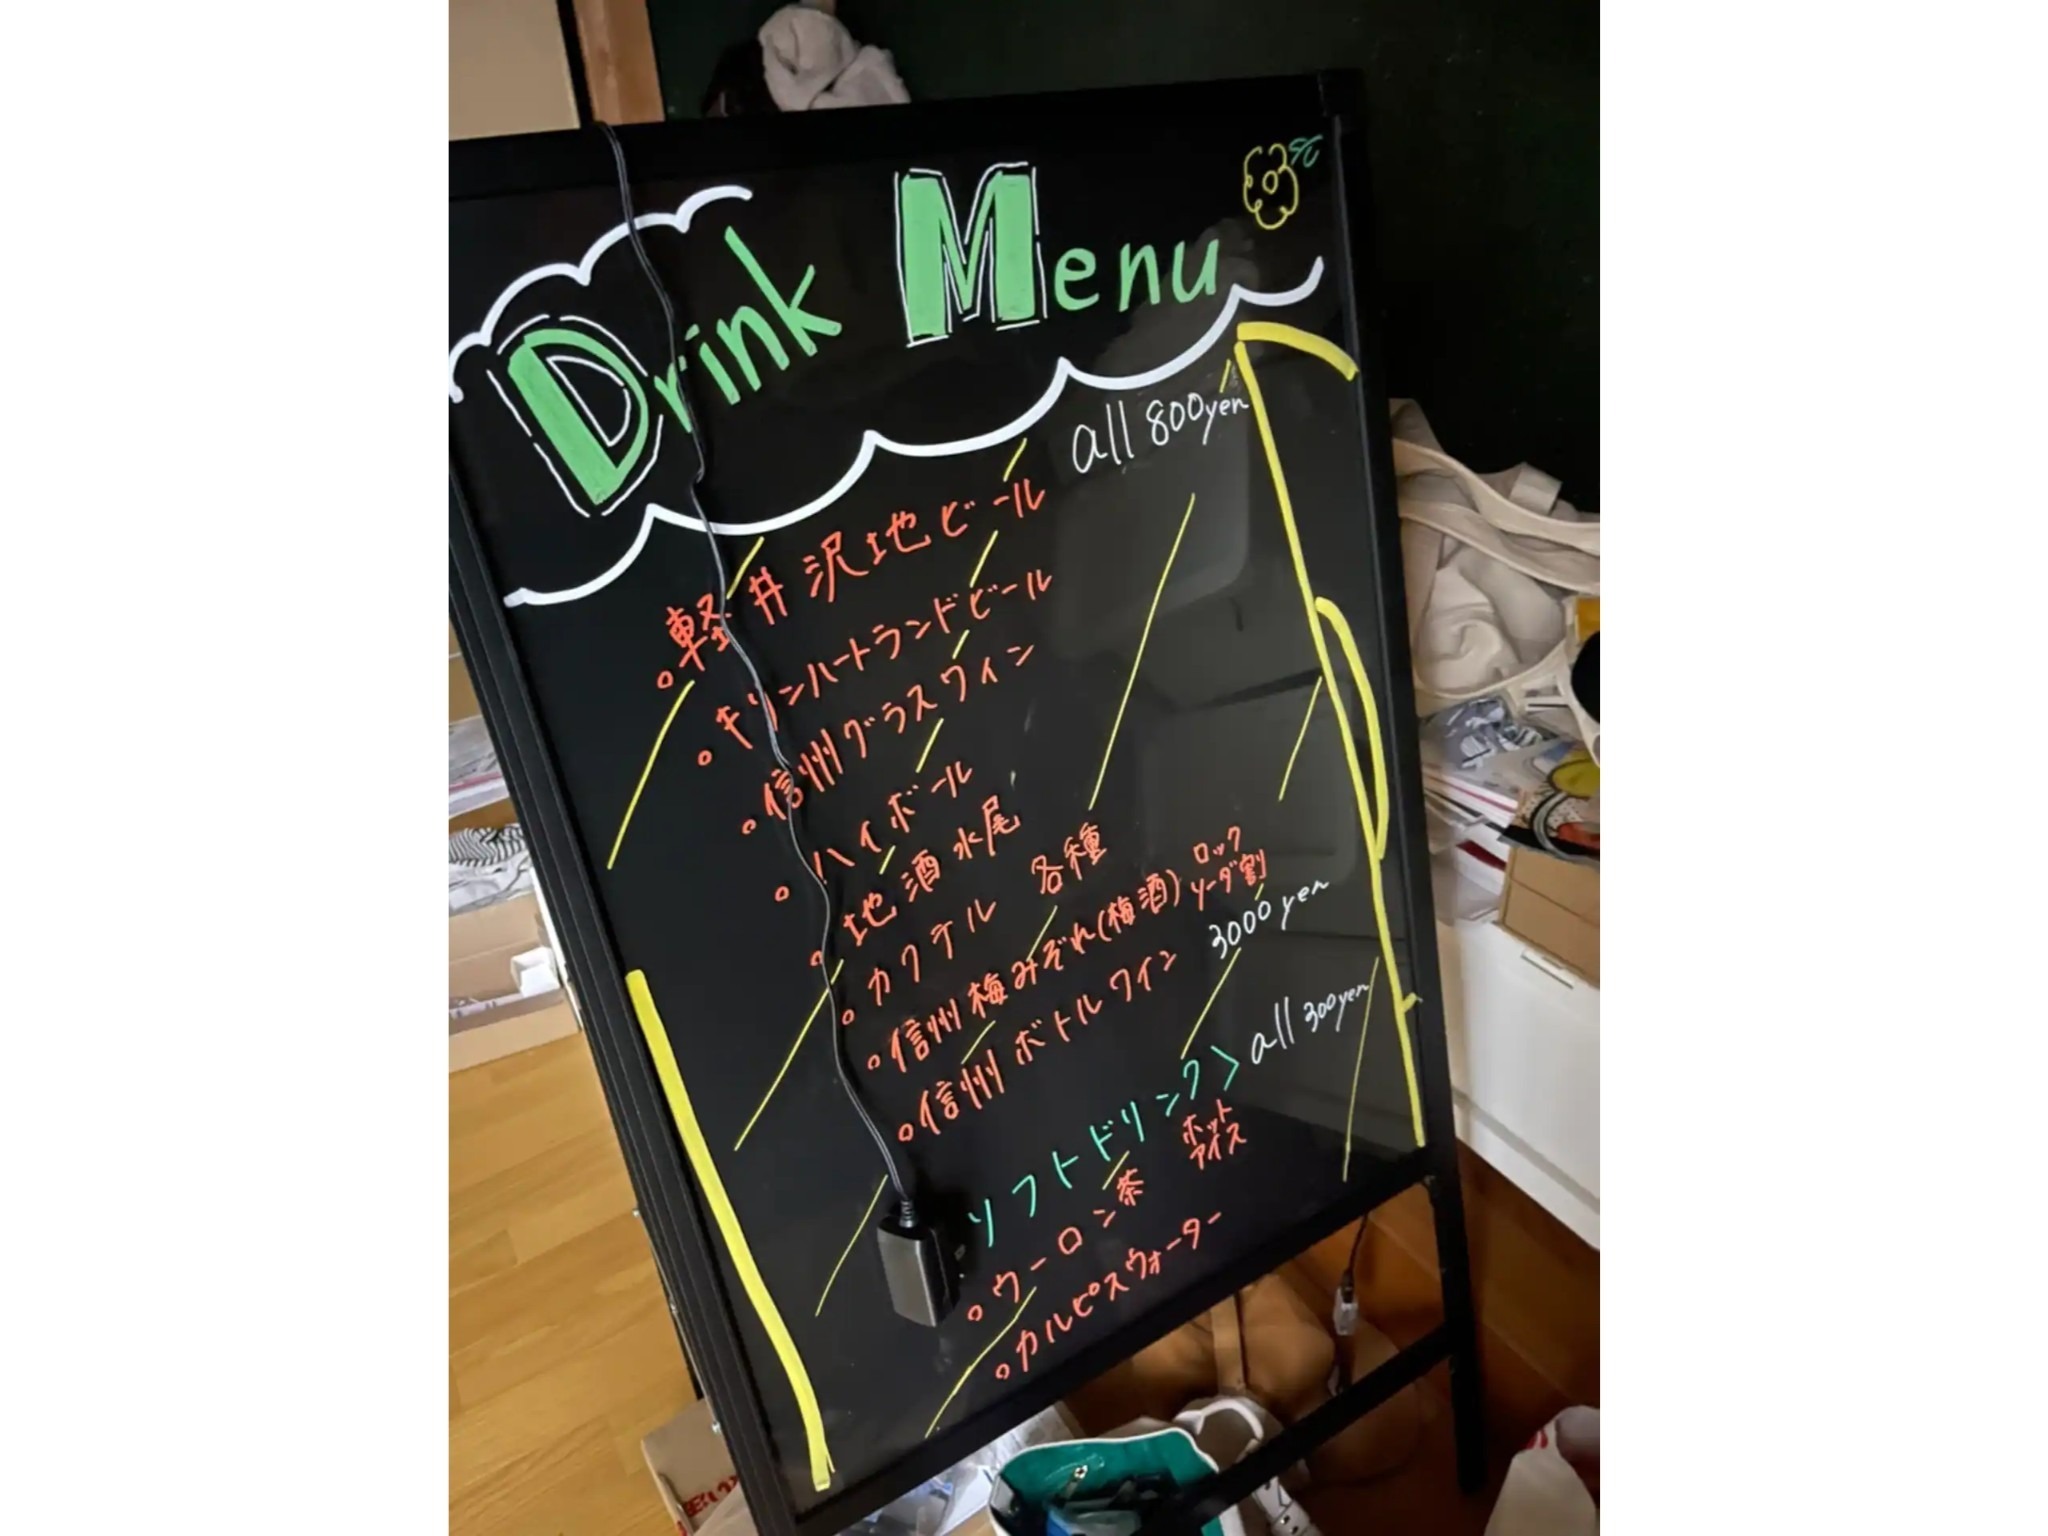 Drink Menu
all 800yen
。軽井沢地ビール
。キリンハートランドビール
。信州グラスワイン
。ハイボール
。地酒水尾
。カクテル 各種
。信州梅みぞれ(梅酒) ロック
ソーダ割
。信州ボトルワイン 3000yen
ソフトドリンク> all 300yen
。ウーロン茶 ホット
アイス
。カルピスウォーター